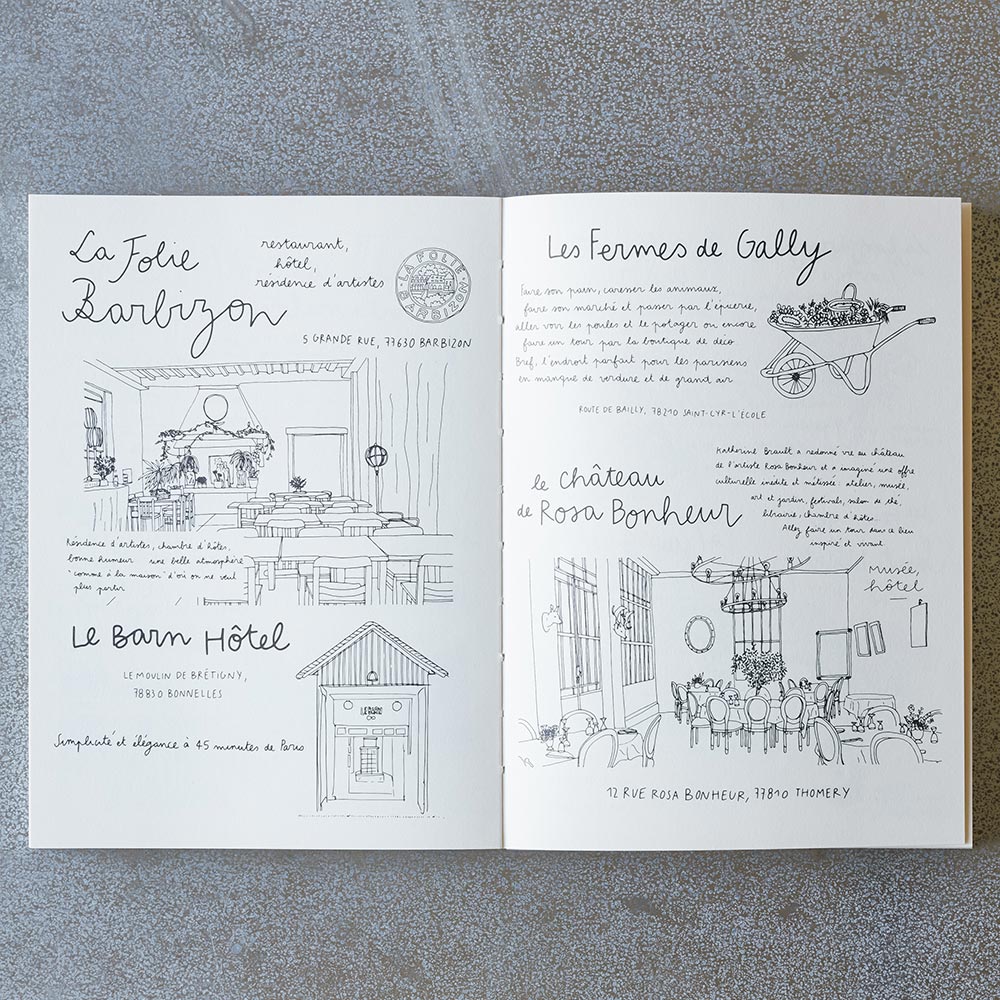 La Folie
Barbizon
restaurant,
hôtel,
résidence d'artistes
LA FOLIE BARBIZON
5 GRANDE RUE, 77630 BARBIZON
Résidence d'artistes, chambre d'hôtes,
bonne humeur une belle atmosphère
"comme à la maison" d'où on ne veut
plus partir
LE BARN HÔTEL
LE MOULIN DE BRÉTIGNY,
78830 BONNELLES
Simplicité et élégance à 45 minutes de Paris
LE BARN
Les Fermes de Gally
Faire son pain, caresser les animaux,
faire son marché et passer par l'épicerie,
aller voir les poules et le potager ou encore
faire un tour par la boutique de déco
Bref, l'endroit parfait pour les parisiens
en manque de verdure et de grand air
ROUTE DE BAILLY, 78210 SAINT-CYR-L'ÉCOLE
le Château
de Rosa Bonheur
Katherine Brault a redonné vie au château
de l'artiste Rosa Bonheur et a imaginé une offre
culturelle inédite et métissée: atelier, musée,
art et jardin, festivals, salon de thé,
librairie, chambre d'hôtes...
Allez faire un tour dans ce lieu
inspiré et vivant
Musée,
hôtel
12 RUE ROSA BONHEUR, 77810 THOMERY